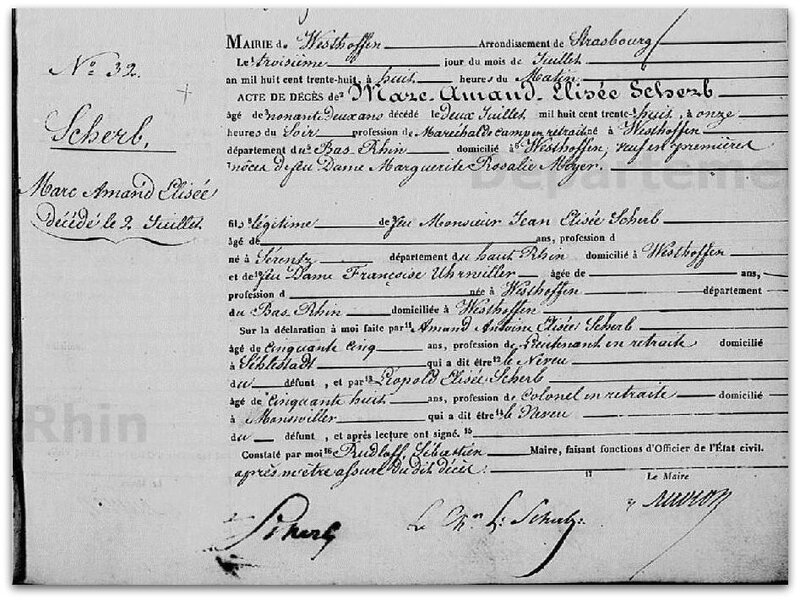 N° 32.
Scherb,
Marc Amand Elisée
décédé le 2 Juillet
MAIRIE de Westhoffen Arrondissement de Strasbourg
Le troisième jour du mois de Juillet
an mil huit cent trente-huit, à huit heures du Matin
ACTE DE DÉCÈS de Marc-Amand-Elisée Scherb
âgé de nonante deux ans décédé le deux Juillet mil huit cent trente-huit, à onze
heures du Soir profession de Maréchal de camp en retraite né à Westhoffen
département du Bas Rhin domicilié à Westhoffen, veuf en premières
nôces de feu Dame Marguerite Rosalie Meyer.
fils légitime de feu Monsieur Jean Elisée Scherb
âgé de ans, profession d
né à Sérentz département du haut Rhin domicilié à Westhoffen
et de feu Dame Françoise Uhrwiller âgée de ans,
profession d née à Westhoffen département
du Bas Rhin domiciliée à Westhoffen
Sur la déclaration à moi faite par 11 Amand Antoine Elisée Scherb
âgé de Cinquante Cinq ans, profession de Lieutenant en retraite domicilié
à Schlestadt qui a dit être 12 le Neveu
du défunt, et par 13 Léopold Elisée Scherb
âgé de Cinquante huit ans, profession de Colonel en retraite domicilié
à Monswiller qui a dit être 14 le Neveu
du défunt, et après lecture ont signé. 15
Constaté par moi 16 Rudloff, Sébastien Maire, faisant fonctions d'Officier de l'État civil.
après m'être assuré du dit décès. 17
Le Maire
Scherb
Scherb
Rhin
Departeme